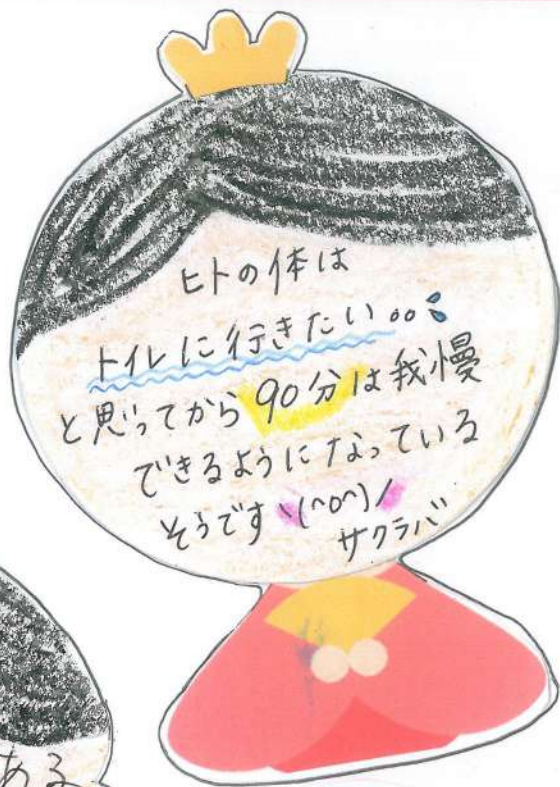 ヒトの体は
トイレに行きたい。。
と思ってから90分は我慢
できるようになっている
そうです\(^o^)/
サクラバ
ある